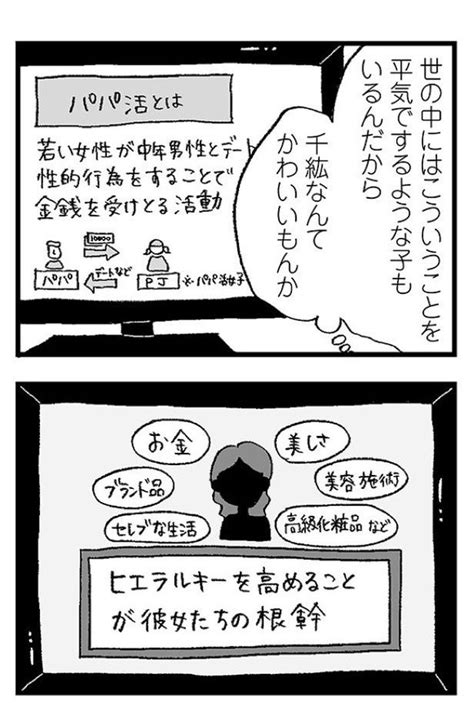 世の中にはこういうことを
平気でするような子も
いるんだから
千紘なんて
かわいいもんか
パパ活とは
若い女性が中年男性とデート
性的行為をすることで
金銭を受けとる活動
10000
パパ
デートなど
PJ
※パパ活女子
お金
美しさ
ブランド品
美容施術
セレブな生活
高級化粧品など
ヒエラルキーを高めること
が彼女たちの根幹